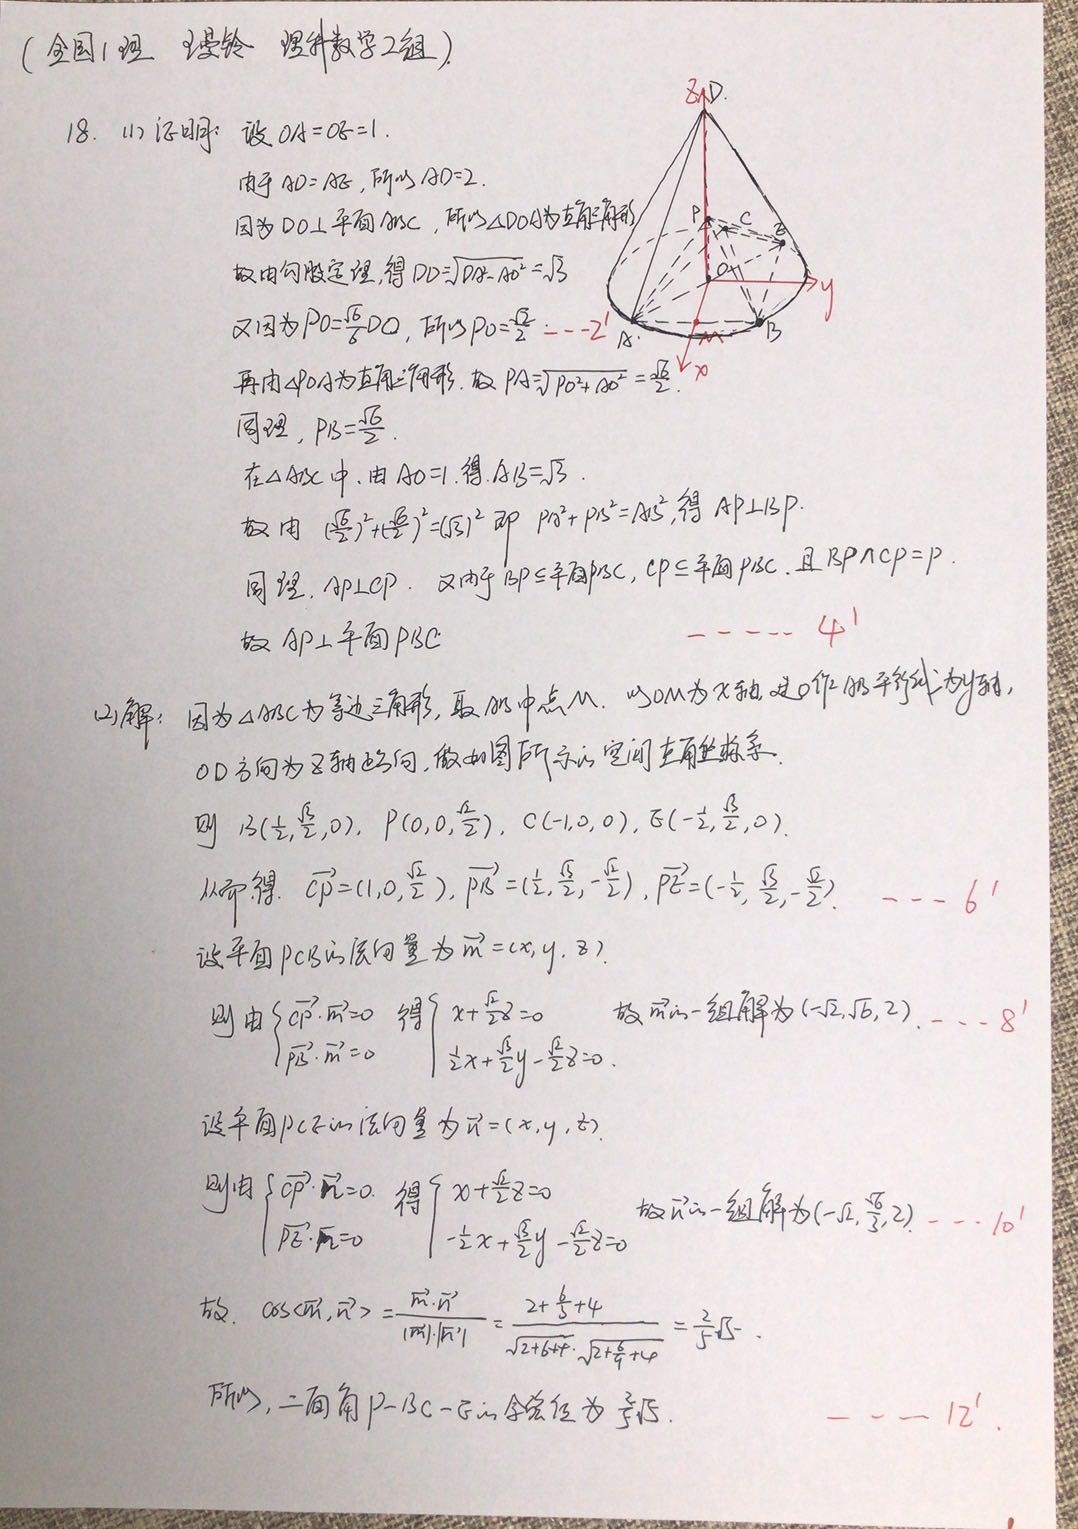 (全国1理 理科数学2组).
18. (1) 证明: 设 OA=OE=1.
由于 AD=AE, 所以 AD=2.
因为 DO⊥平面ABC, 所以△DOA为直角三角形
故由勾股定理,得 DO=√(DA²-AO²)=√3
又因为PO=√6/6 DO, 所以PO=√2/2. ---2'
再由△POA为直角三角形. 故 PA=√(PO²+AO²)=√6/2.
同理, PB=√6/2.
在△ABC中, 由AO=1.得.AB=√3.
故由 (√6/2)²+(√6/2)²=(√3)² 即 PA²+PB²=AB²,得 AP⊥BP.
同理, AP⊥CP. 又由于BP⊆平面PBC, CP⊆平面PBC. 且BP∩CP=P.
故 AP⊥平面PBC ----- 4'
(2)解: 因为△ABC为等边三角形, 取AB中点M. 以OM为X轴, 过O作AB平行线为y轴,
OD方向为Z轴正方向,做如图所示的空间直角坐标系.
则 B(1/2,√3/2,0), P(0,0,√2/2), C(-1,0,0), E(-1/2,√3/2,0).
从而得. CP→=(1,0,√2/2), PB→=(1/2,√3/2,-√2/2), PE→=(-1/2,√3/2,-√2/2). --- 6'
设平面PCB的法向量为m→=(x,y,z).
则由{CP→·m→=0 得{x+√2/2z=0 故m→的一组解为(-√2,√6,2). ---8'
PB→·m→=0 1/2x+√3/2y-√2/2z=0.
设平面PCE的法向量为n→=(x,y,z).
则由{CP→·n→=0. 得{x+√2/2z=0 故n→的一组解为(-√2,√6/3,2) ---10'
PE→·n→=0 -1/2x+√3/2y-√2/2z=0
故. cos<m→,n→>=m→·n→/|m→|·|n→|=(2+6/3+4)/(√(2+6+4)·√(2+6/9+4))=2/5√5.
所以, 二面角P-BC-E的余弦值为2/5√5. ----12'.
Z D.
P C E
O y
A. M B
x